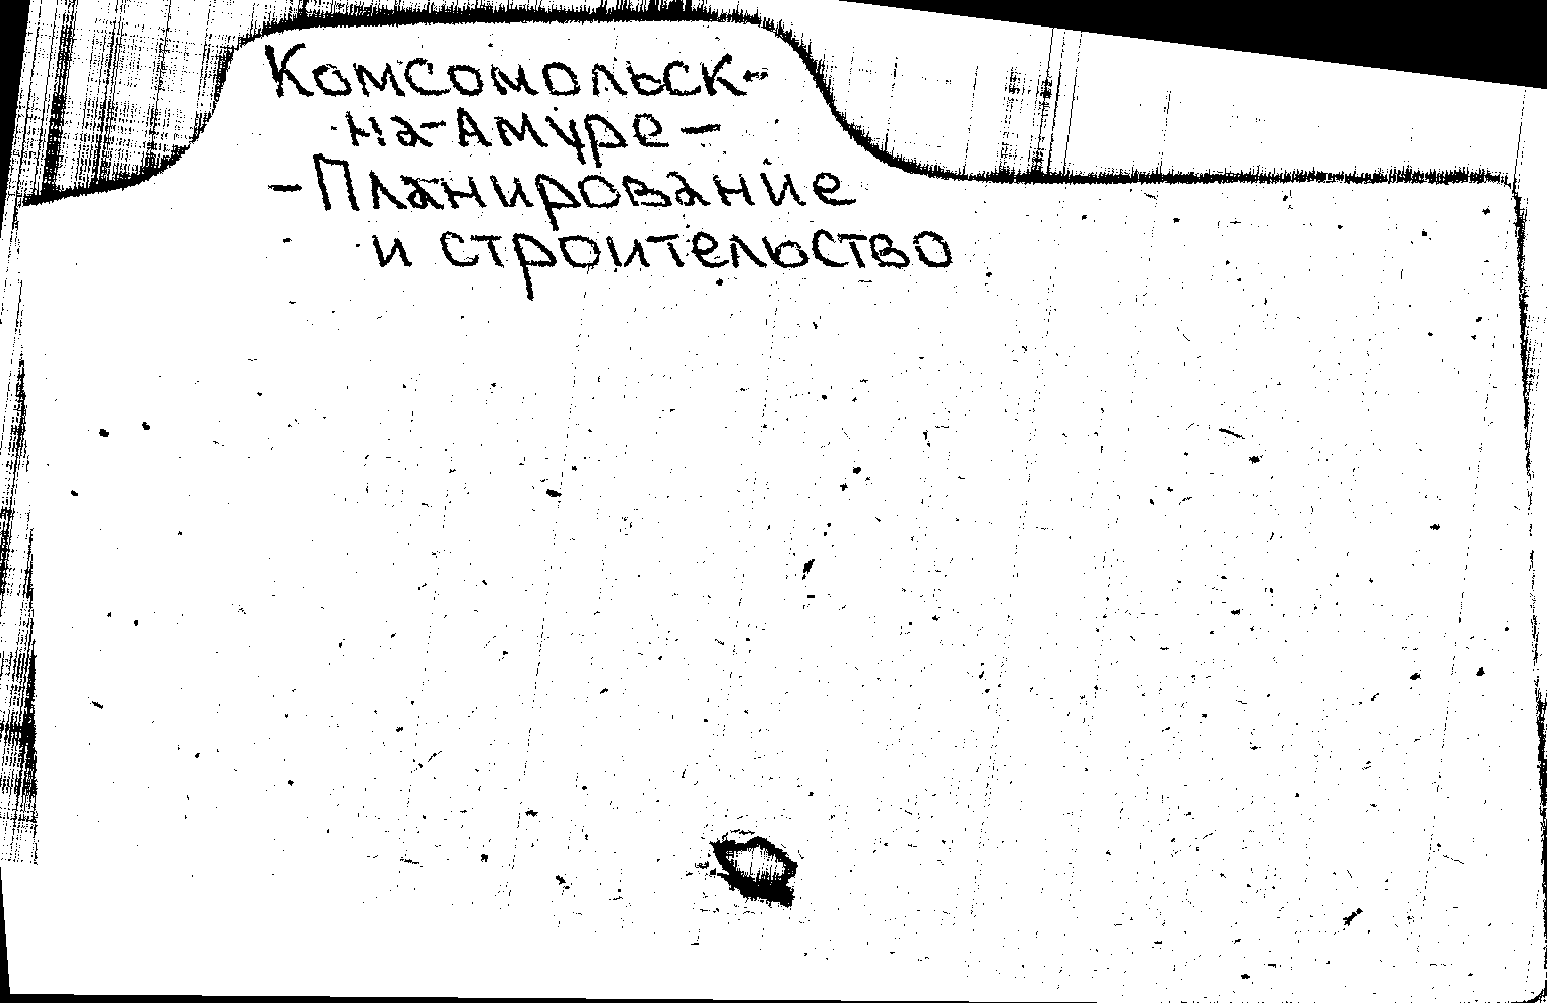 Комсомольск-
на-Амуре –
– Планирование
и строительство